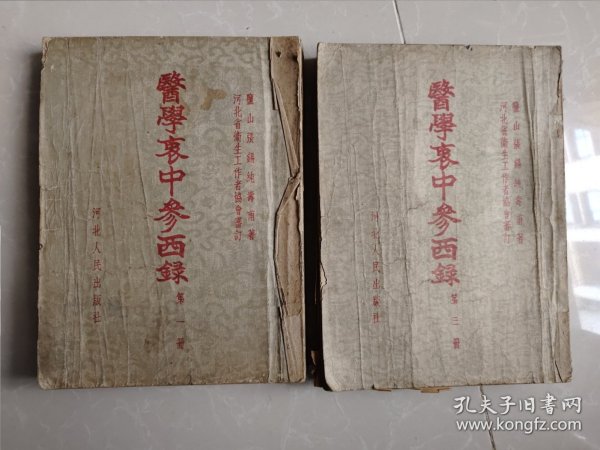 醫學衷中參西録
第一冊
鹽山張錫純壽甫著
河北省衛生工作者協會審訂
河北人民出版社
醫學衷中參西録
第三冊
鹽山張錫純壽甫著
河北省衛生工作者協會審訂
河北人民出版社
孔夫子旧书网
www.kongfz.com